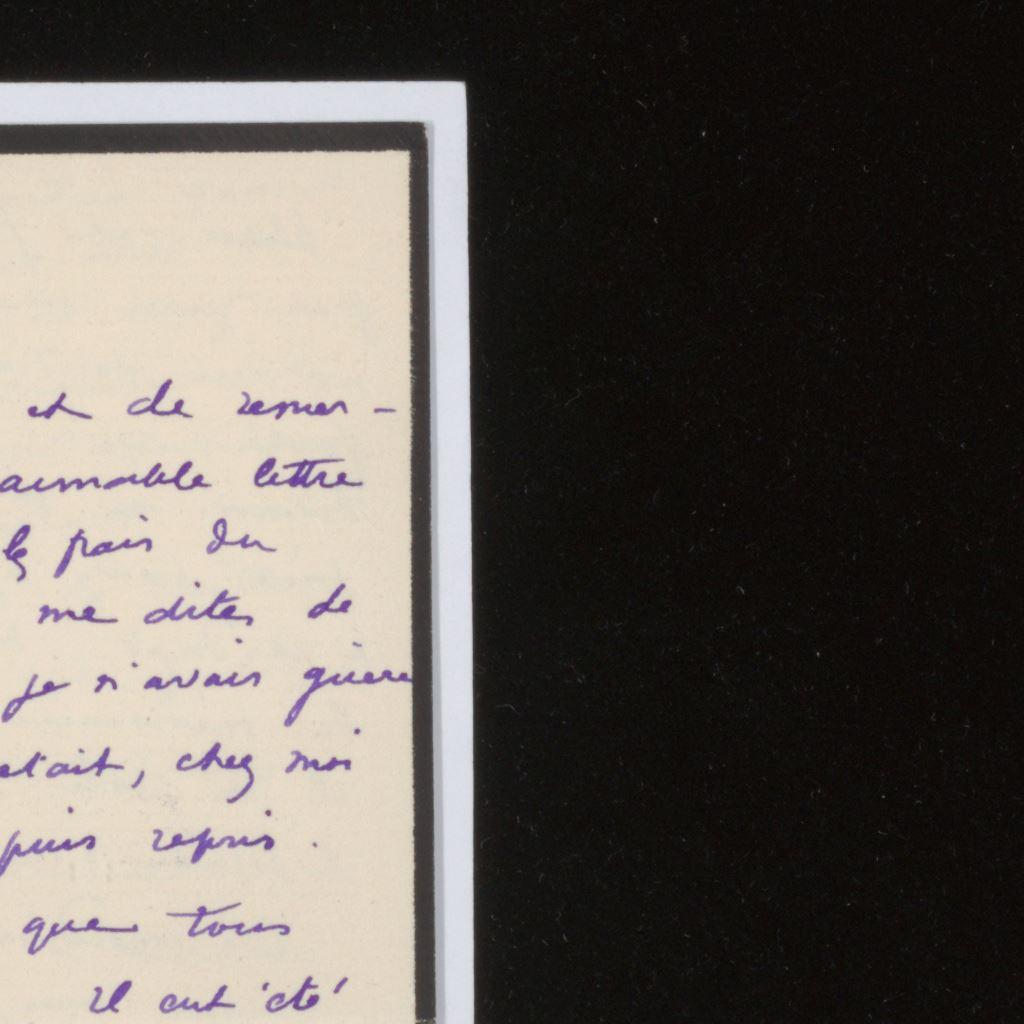 et de remer-
aimable lettre
pais du
me dites de
je n'avais guère
etait, chez moi
puis repris.
que tous
Il eut été